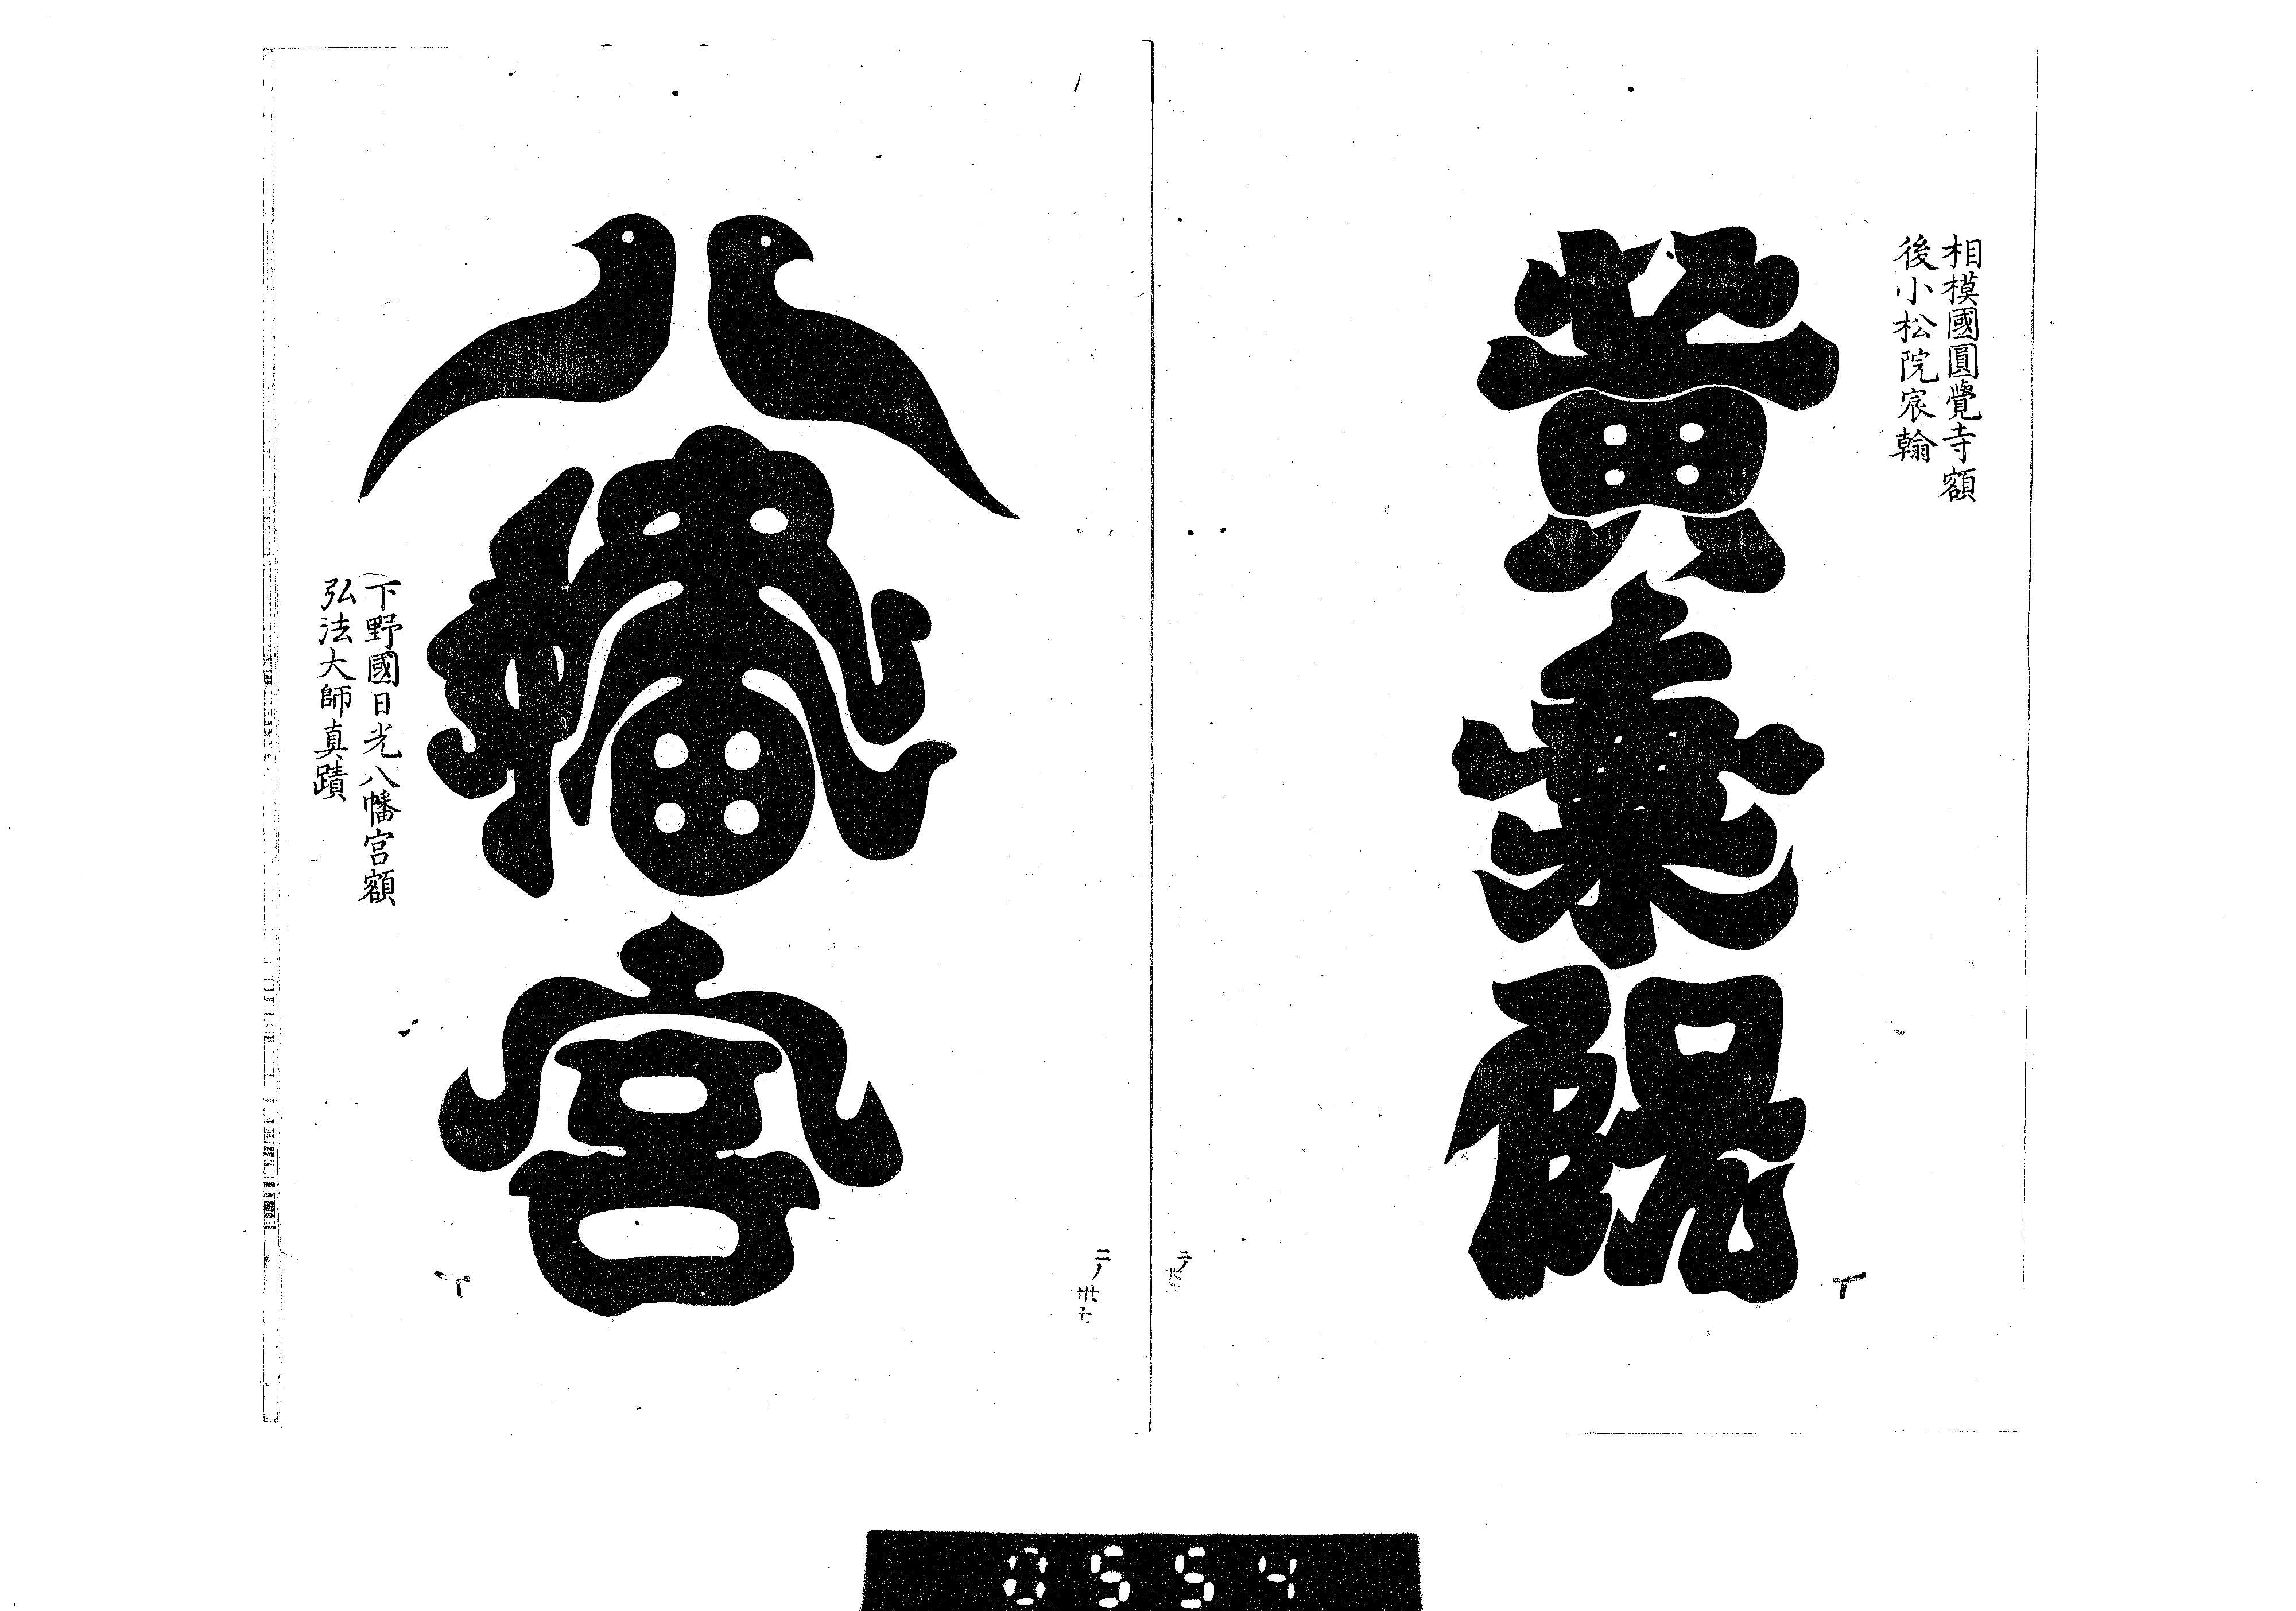 相模國圓覺寺額
後小松院宸翰
黄梅院
二ノ卅七
八幡宮
下野國日光八幡宮額
弘法大師真蹟
0554